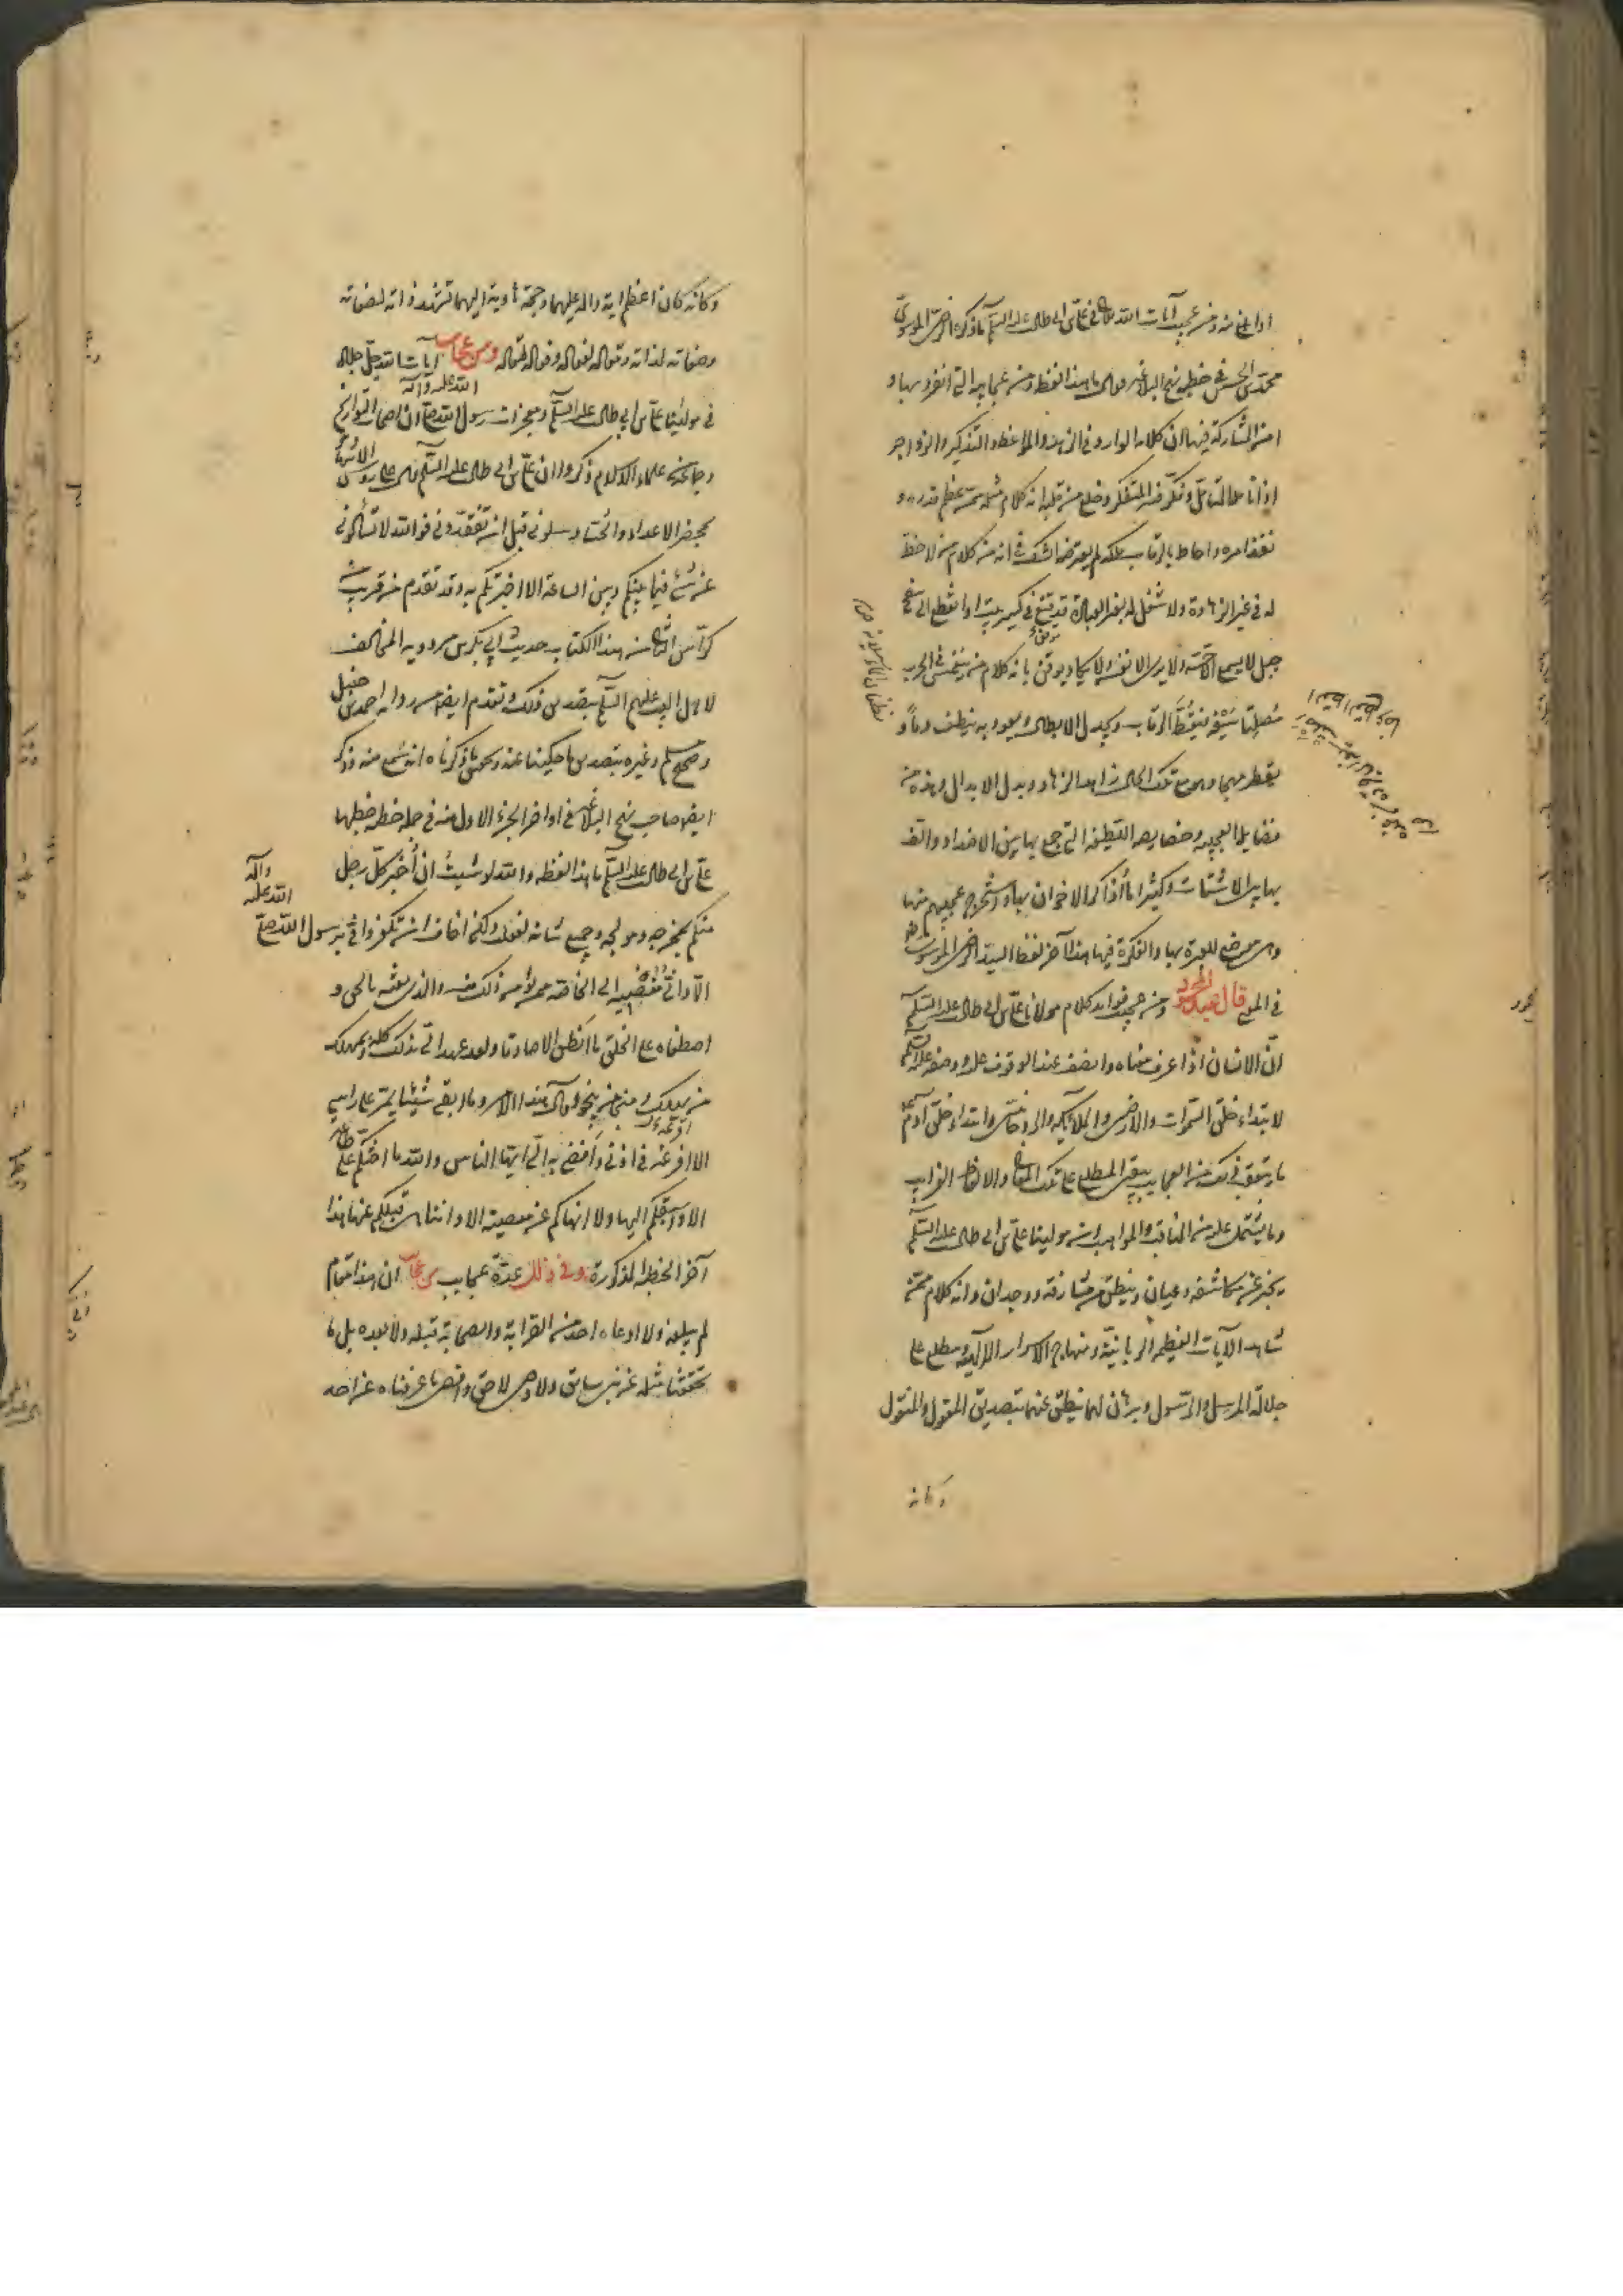 او ابلغ منه ومن عجيب آيات الله تعالى في علي بن ابي طالب عليه السلام ما ذكره الرضي الموسوي
محمد بن الحسين في خطبة نهج البلاغة فقال ما هذا لفظه ومن عجايبه التي انفرد بها و
امن المشاركة فيها ان كلامه الوارد في الزهد والمواعظ والتذكير والزواجر
اذا تأمله المتأمل وفكر فيه المتفكر وخلع من قلبه انه كلام مثله ممن عظم قدره و
نفذ امره واحاط بالرقاب ملكه لم يعترضه الشك في انه من كلام من لا حظ
له في غير الزهادة ولا شغل له بغير العبادة قد قبع في كسر بيت او انقطع الى سفح
جبل لا يسمع الا حسه ولا يرى الا نفسه ولا يكاد يوقن بانه كلام من ينغمس في الحرب
مصلتا سيفه فيقط الرقاب ويجدل الابطال ويعود به ينطف دما و
يقطر مهجا وهو مع تلك الحال زاهد الزهاد وبدل الابدال وهذه من
فضايله العجيبة وخصايصه اللطيفة التي جمع بها بين الاضداد والف
بها بين الاشتات وكثيرا ما اذاكر الاخوان بها واستخرج عجبهم منها
وهي موضع للعبرة بها والفكرة فيها هذا آخر لفظ السيد الرضي الموسوي
في المعنى قال عبد المحمود ومن عجيب فوايد كلام مولانا علي بن ابي طالب عليه السلام
ان الانسان اذا عرف معناه وانصف عند الوقوف عليه ووصفه عليه السلام
لابتداء خلق السموات والارض والملائكة والروحانيين وابتداء خلق آدم
ما يتفق في ذلك من العجايب يبقى المطلع على تلك المعاني والالفاظ الغرايب
وما يشتمل عليه من المناقب والمواهب ان مولينا علي بن ابي طالب عليه السلام
يخبر عن مكاشفة وعيان وينطق عن مشارفة ووجدان وانه كلام من
شاهد الآيات العظيمة الربانية ومنهاج الاسرار الالهية ومطلع على
جلالة المرسل والرسول وبرهان لهما ينطق عنهما بتصديق المعقول والمنقول
وكانه
وكانه كان اعظم آية دالة عليهما وحجة هادية اليهما تشهد ذاته لصفاته
وصفاته لذاته ومقاله لفعاله وفعاله لمقاله ومن عجايب آيات الله جل جلاله
في مولينا علي بن ابي طالب عليه السلام ومعجزات رسول الله صلى الله عليه وآله ان اصحاب التواريخ
وجماعة من علماء الاسلام ذكروا ان علي بن ابي طالب عليه السلام قال على رؤس الاشهاد
بمحضر الاعداء والحساد سلوني قبل ان تفقدوني فوالله لا تسألوني
عن شيء فيما بينكم وبين الساعة الا اخبرتكم به وقد تقدم من قريب
كراس من هذا الكتاب حديث ابي بكر بن مردويه المخالف
لاهل البيت عليهم السلام بتصديق ذلك وتقدم ايضا من مسند احمد بن حنبل
وصحيح مسلم وغيره بتصديق ما حكيناه عنه وتحقيق ما ذكرناه انه سمع منه وذكر
ايضا صاحب نهج البلاغة في اواخر الجزء الاول منه في جملة خطبة خطبها
علي بن ابي طالب عليه السلام ما هذا لفظه والله لو شئت ان اخبر كل رجل
منكم بمخرجه ومولجه وجميع شانه لفعلت ولكن اخاف ان تكفروا في برسول الله صلى الله عليه وآله
الا واني مفضيه الى الخاصة ممن يؤمن ذلك منه والذي بعثه بالحق و
اصطفاه على الخلق ما انطق الا صادقا ولقد عهد الي بذلك كله وبمهلك
من يهلك ومنجى من ينجو ومآل هذا الامر وما ابقى شيئا يمر على راسي
الا افرغه في اذني وافضى به الي ايها الناس والله ما احثكم على طاعة
الا واسبقكم اليها ولا انهاكم عن معصية الا واتناهى قبلكم عنها هذا
آخر الخطبة المذكورة وفي ذلك عدة عجايب من عجايب ان هذا المقام
لم يبلغه ولا ادعاه احد من القرابة والصحابة قبله ولا بعده بل ما
تحققنا مثله عن نبي سابق ولا وصي لاحق واقصى ما عرفناه عن احد